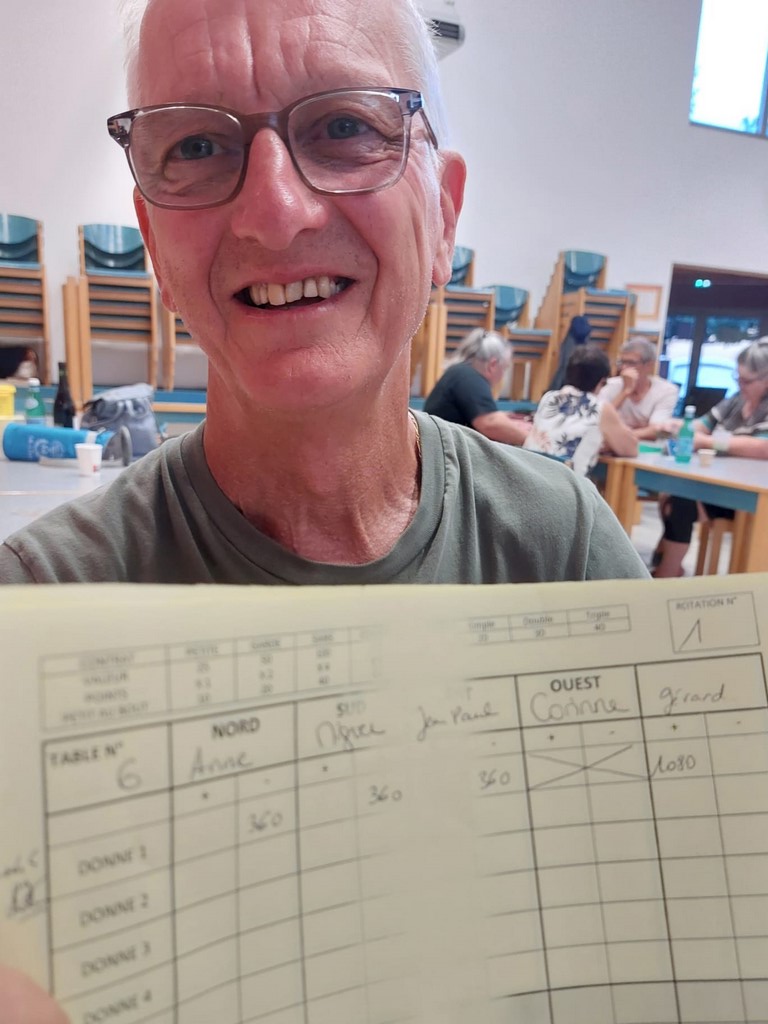 CONTRAT PETITE GARDE SANS
VALEUR 25 50 100
POINTS
PETIT AU BOUT 10 20 40
Simple Double Triple
20 30 40
ROTATION N°
1
TABLE N° 6
NORD SUD OUEST
Anne Agnes Jean Paul Corinne gérard
+ - + - + - + -
360 360 360 1080
DONNE 1
DONNE 2
DONNE 3
DONNE 4